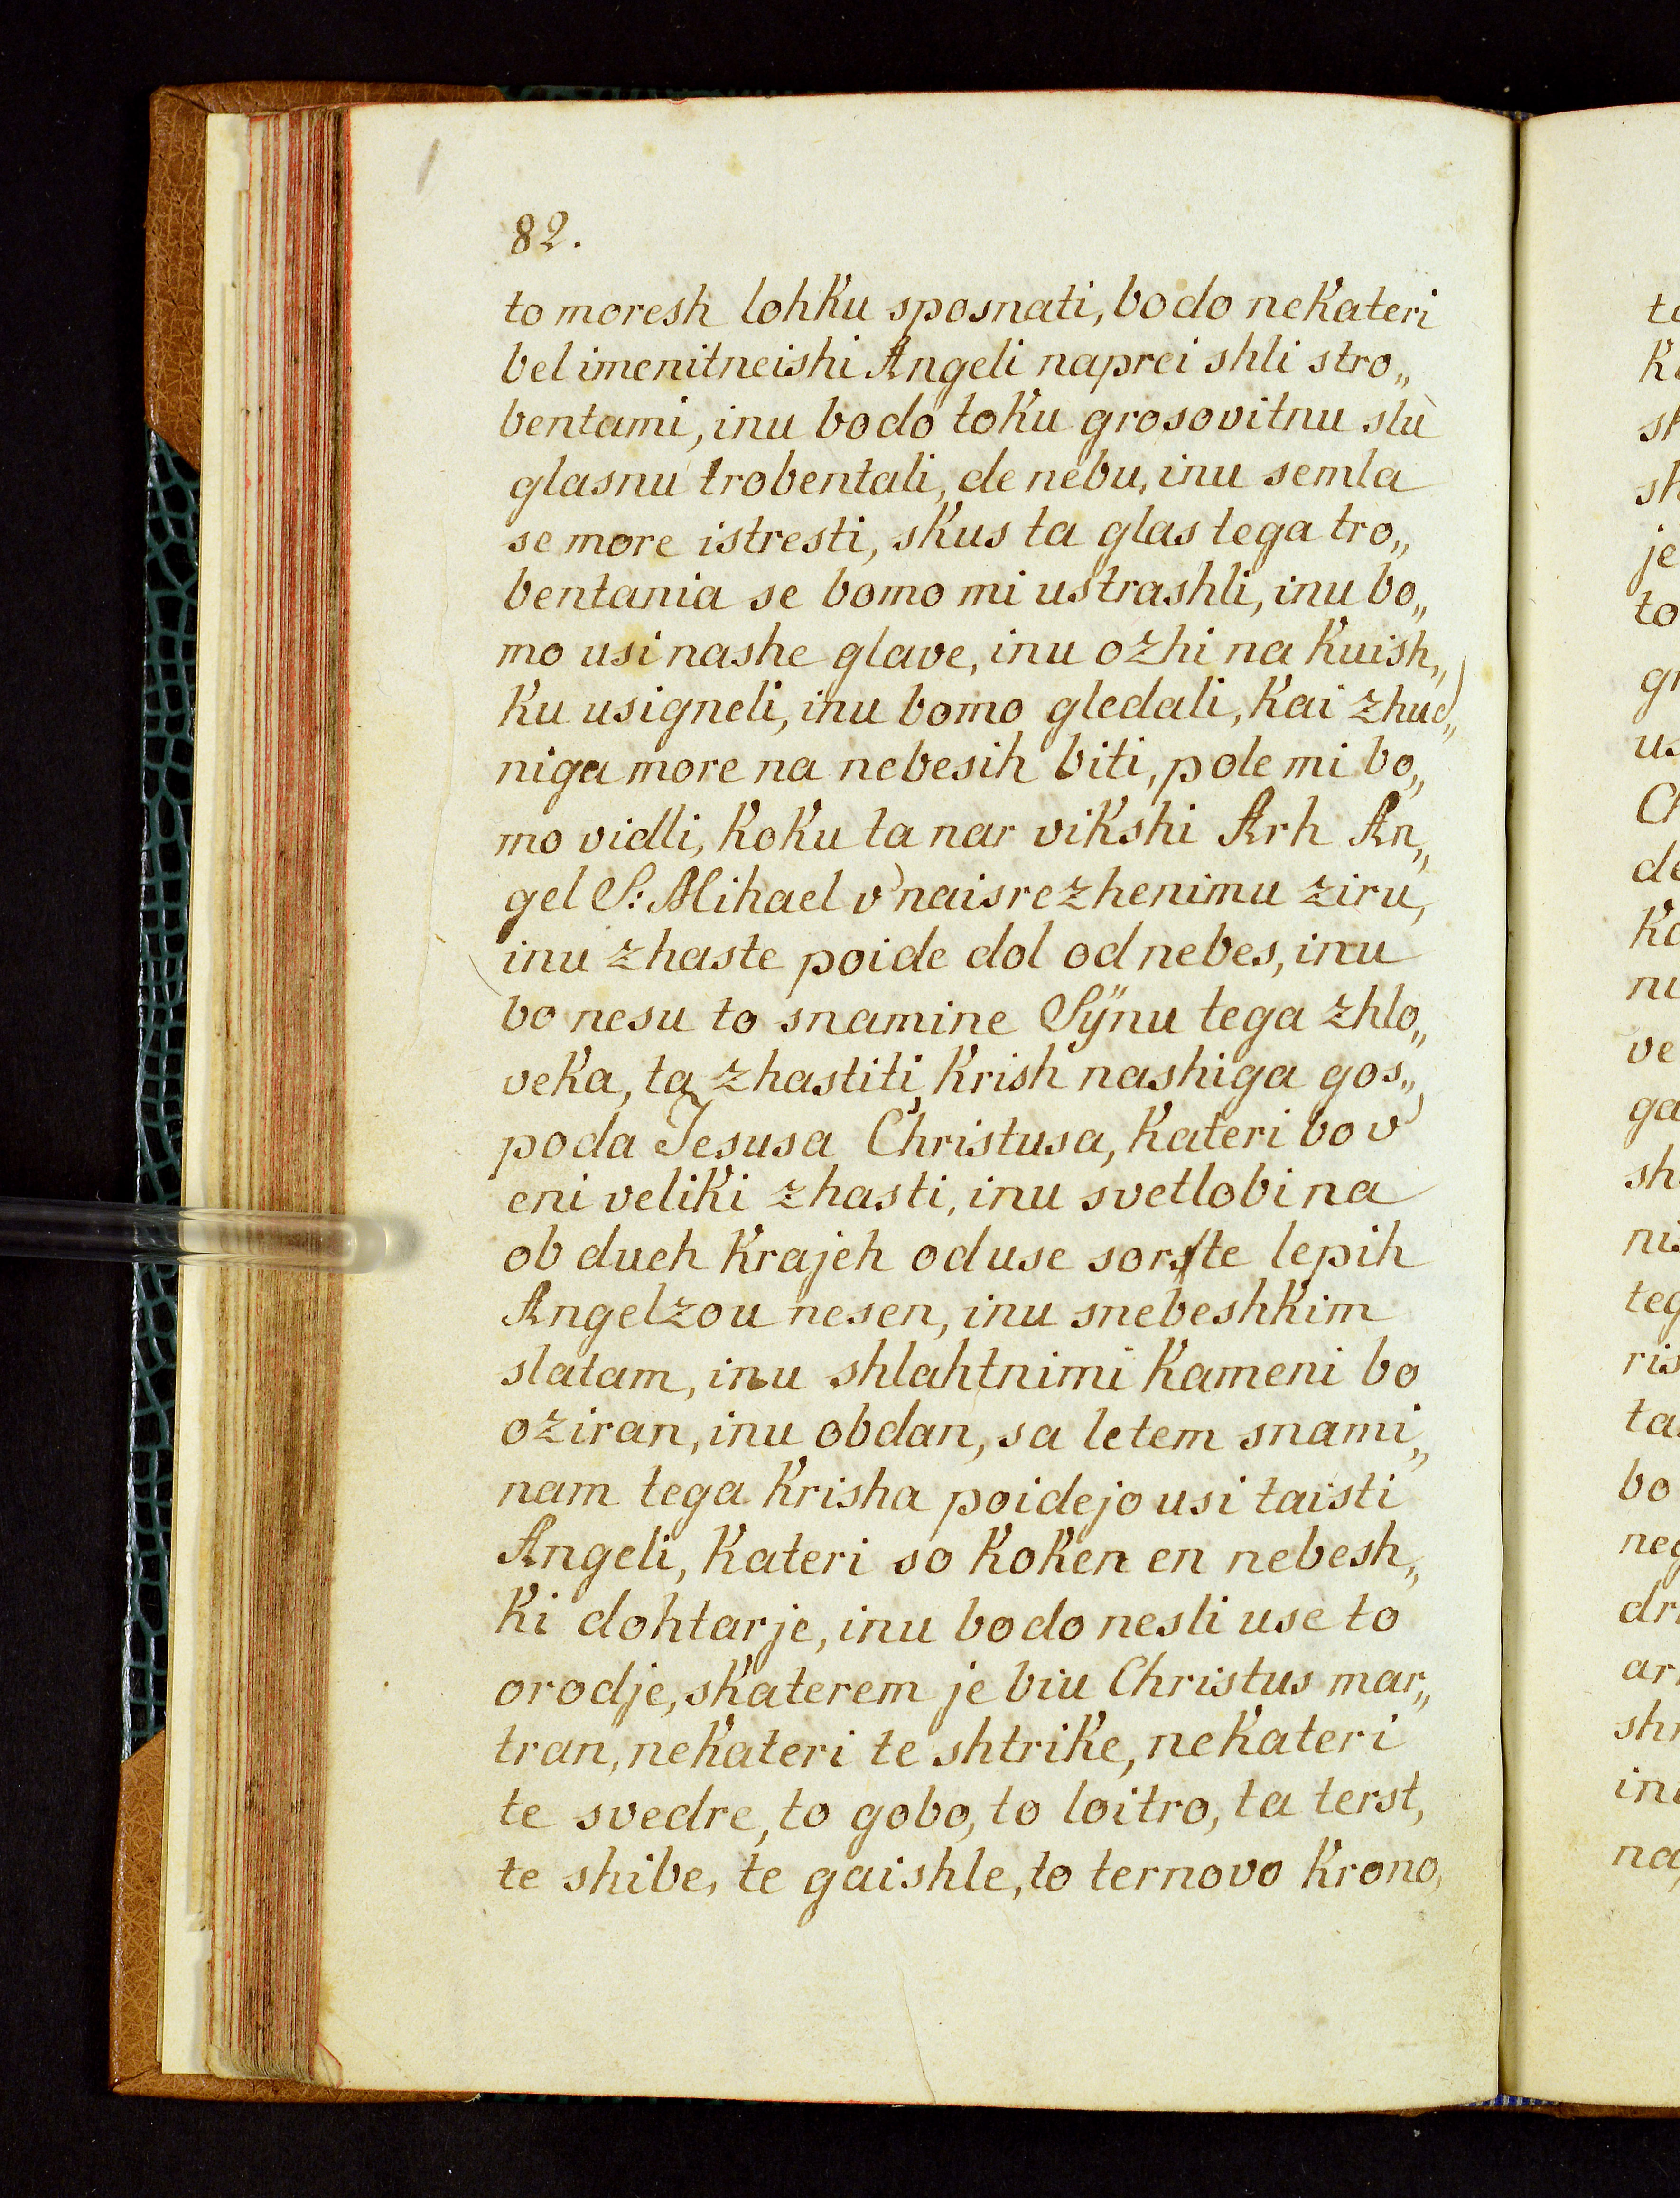 82.
to moresh lohku sposnati, bodo nekateri
bel imenitneishi Angeli naprei shli stro„
bentami, inu bodo toku grosovitnu slù
glasnu trobentali, de nebu, inu semla
se more istresti, skus ta glas tega tro„
bentania se bomo mi ustrashli, inu bo„
mo usi nashe glave, inu ozhi na kuish„
ku usigneli, inu bomo gledali, kai zhud„
niga more na nebesih biti, pole mi bo„
mo vidli, koku ta nar vikshi Arh An„
gel S: Mihael v'naisrezhenimu ziru,
inu zhaste poide dol od nebes, inu
bo nesu to snamine Sÿnu tega zhlo„
veka, ta zhastiti krish nashiga gos„
poda Jesusa Christusa, kateri bo v'
eni veliki zhasti, inu svetlobi na
ob dueh krajeh oduse sorste lepih
Angelzou nesen, inu snebeshkim
slatam, inu shlahtnimi kameni bo
oziran, inu obdan, sa letem snami„
nam tega krisha poidejo usi taisti
Angeli, kateri so koken en nebesh„
ki dohtarje, inu bodo nesli use to
orodje, skaterem je biu Christus mar„
tran, nekateri te shtrike, nekateri
te svedre, to gobo, to loitro, ta terst,
te shibe, te gaishle, to ternovo krono,